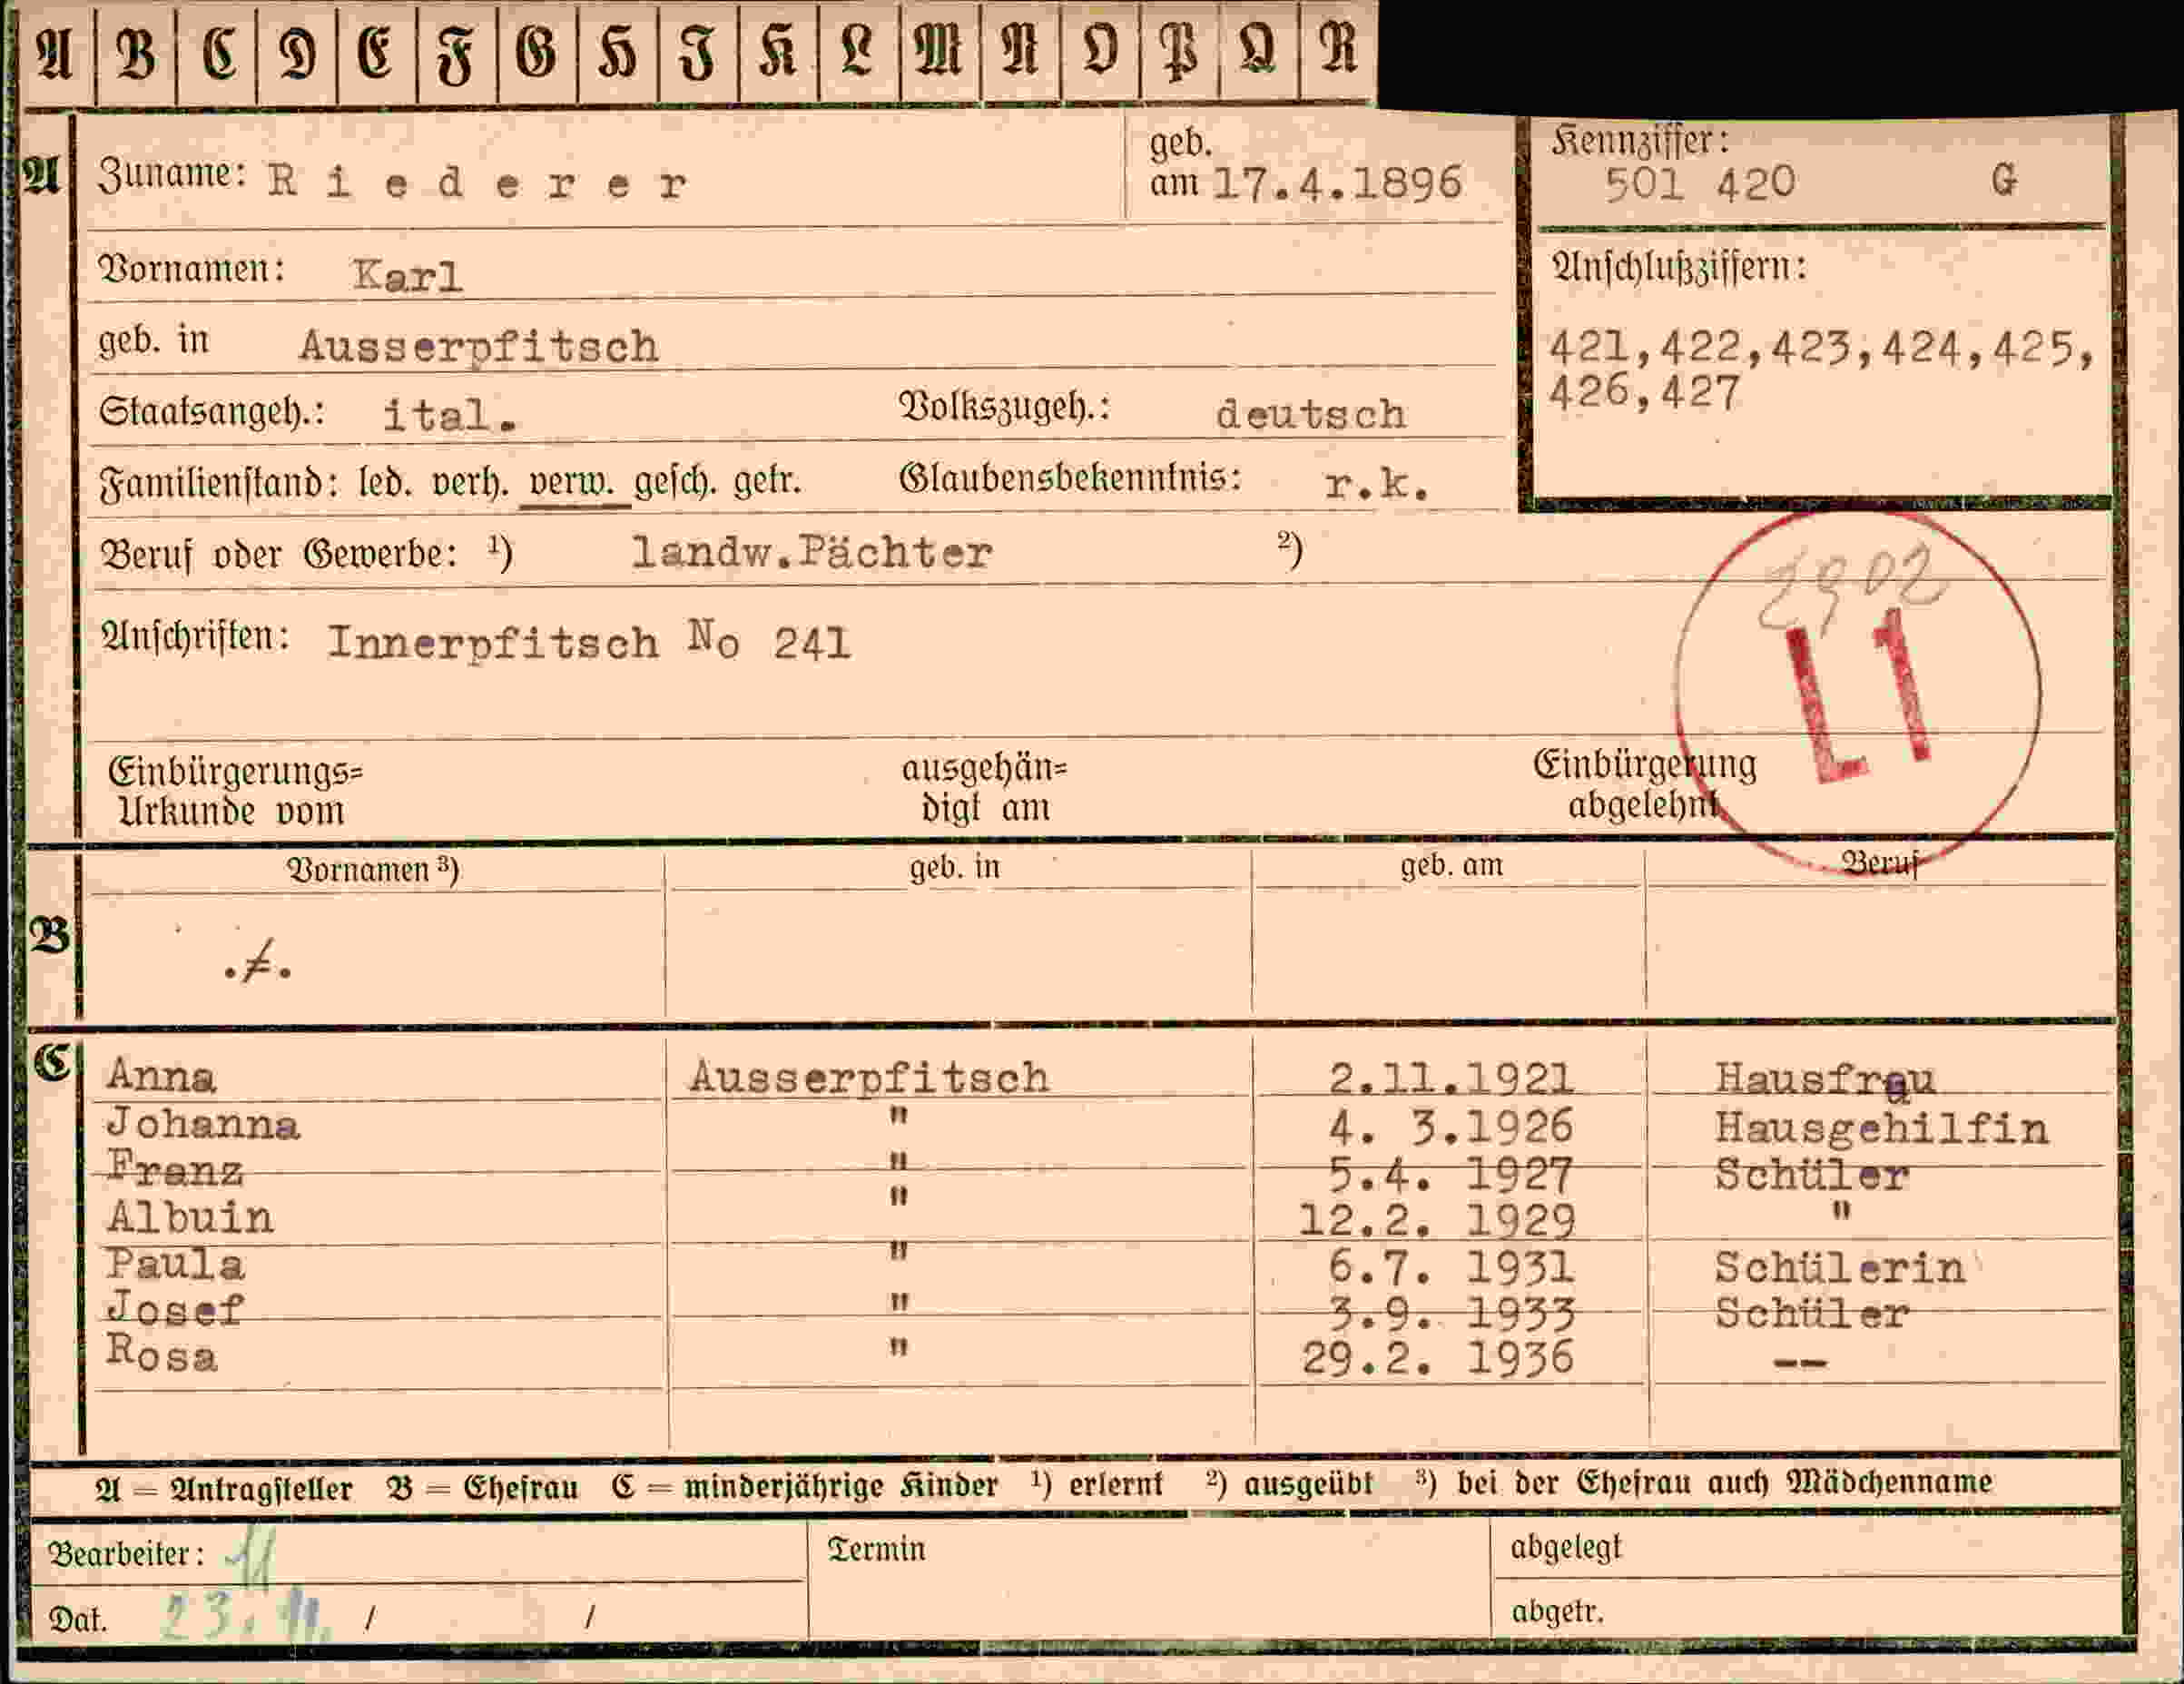 A B C D E F G H J K L M N O P Q R
A Zuname: Riederer geb. am 17.4.1896 Kennziffer: 501 420 G
Vornamen: Karl Anschlußziffern:
geb. in Ausserpfitsch 421,422,423,424,425,
Staatsangeh.: ital. Volkszugeh.: deutsch 426,427
Familienstand: led. verh. verw. gesch. getr. Glaubensbekenntnis: r.k.
Beruf oder Gewerbe: ¹) landw.Pächter ²)
2902
Anschriften: Innerpfitsch No 241
L1
Einbürgerungs= ausgehän= Einbürgerung
Urkunde vom digt am abgelehnt
Vornamen ³) geb. in geb. am Beruf
B ./.
C Anna Ausserpfitsch 2.11.1921 Hausfrau
Johanna " 4. 3.1926 Hausgehilfin
Franz " 5.4. 1927 Schüler
Albuin " 12.2. 1929 "
Paula " 6.7. 1931 Schülerin
Josef " 3.9. 1933 Schüler
Rosa " 29.2. 1936 --
A = Antragsteller B = Ehefrau C = minderjährige Kinder ¹) erlernt ²) ausgeübt ³) bei der Ehefrau auch Mädchenname
Bearbeiter: Termin abgelegt
Dat. 23.11. / / abgetr.